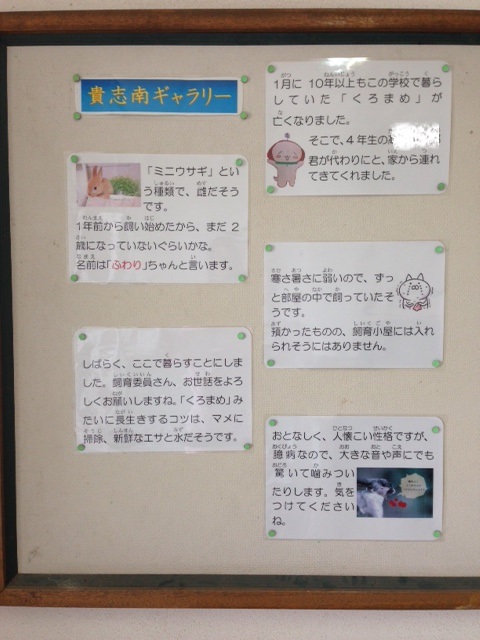 貴志南ギャラリー
1月に 10年以上もこの学校で暮ら
していた「くろまめ」が
亡くなりました。
そこで、4年生の
君が代わりにと、家から連れ
てきてくれました。
「ミニウサギ」とい
う種類で、雌だそう
です。
1年前から飼い始めたから、まだ2
歳になっていないぐらいかな。
名前は「ふわり」ちゃんと言います。
寒さ暑さに弱いので、ずっ
と部屋の中で飼っていたそ
うです。
預かったものの、飼育小屋には入れ
られそうにはありません。
しばらく、ここで暮らすことにしま
した。飼育委員さん、お世話をよろ
しくお願いしますね。「くろまめ」み
たいに長生きするコツは、マメに
掃除、新鮮なエサと水だそうです。
おとなしく、人懐こい性格ですが、
臆病なので、大きな音や声にでも
驚いて噛みつい
たりします。気を
つけてください
ね。